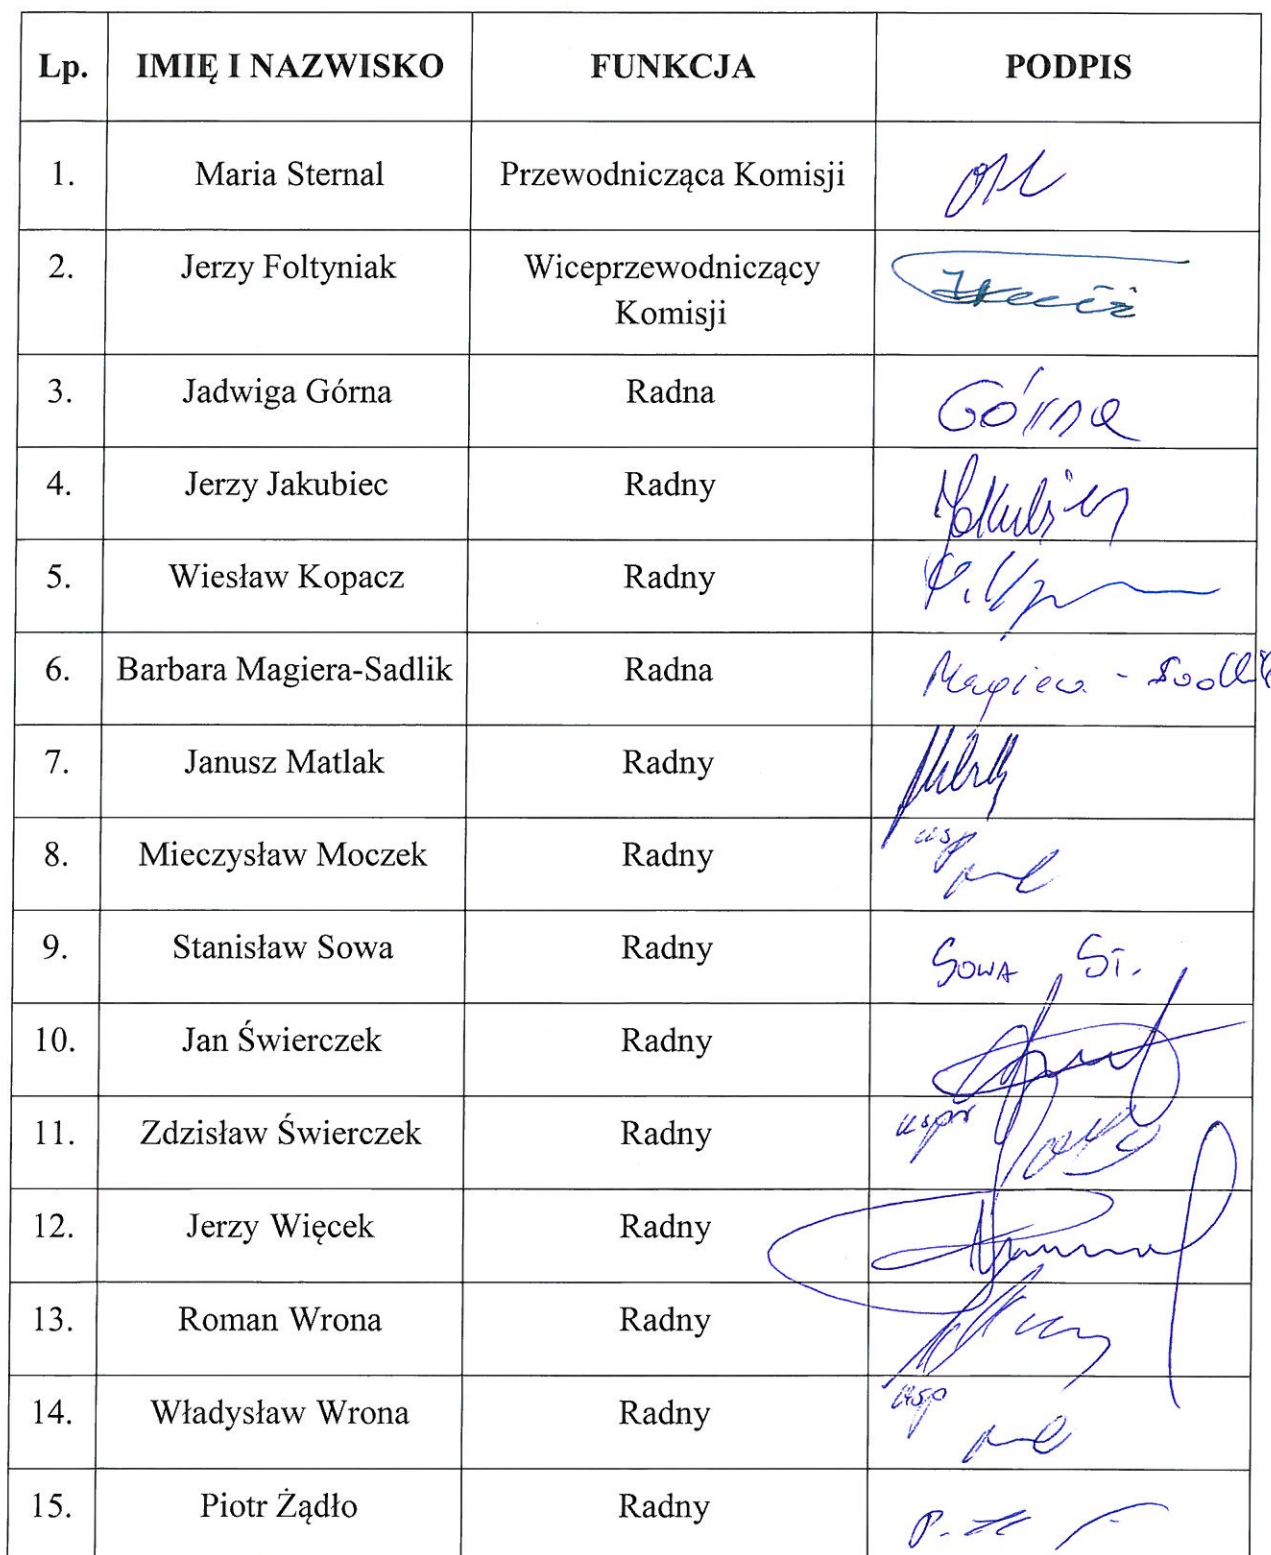 Lp. IMIĘ I NAZWISKO FUNKCJA PODPIS
1. Maria Sternal Przewodnicząca Komisji
2. Jerzy Foltyniak Wiceprzewodniczący
Komisji
3. Jadwiga Górna Radna Górna
4. Jerzy Jakubiec Radny Jakubiec
5. Wiesław Kopacz Radny
6. Barbara Magiera-Sadlik Radna Magiera - Sadlik
7. Janusz Matlak Radny
8. Mieczysław Moczek Radny usp
9. Stanisław Sowa Radny SOWA ST.
10. Jan Świerczek Radny
11. Zdzisław Świerczek Radny uspr
12. Jerzy Więcek Radny
13. Roman Wrona Radny
14. Władysław Wrona Radny usp
15. Piotr Żądło Radny